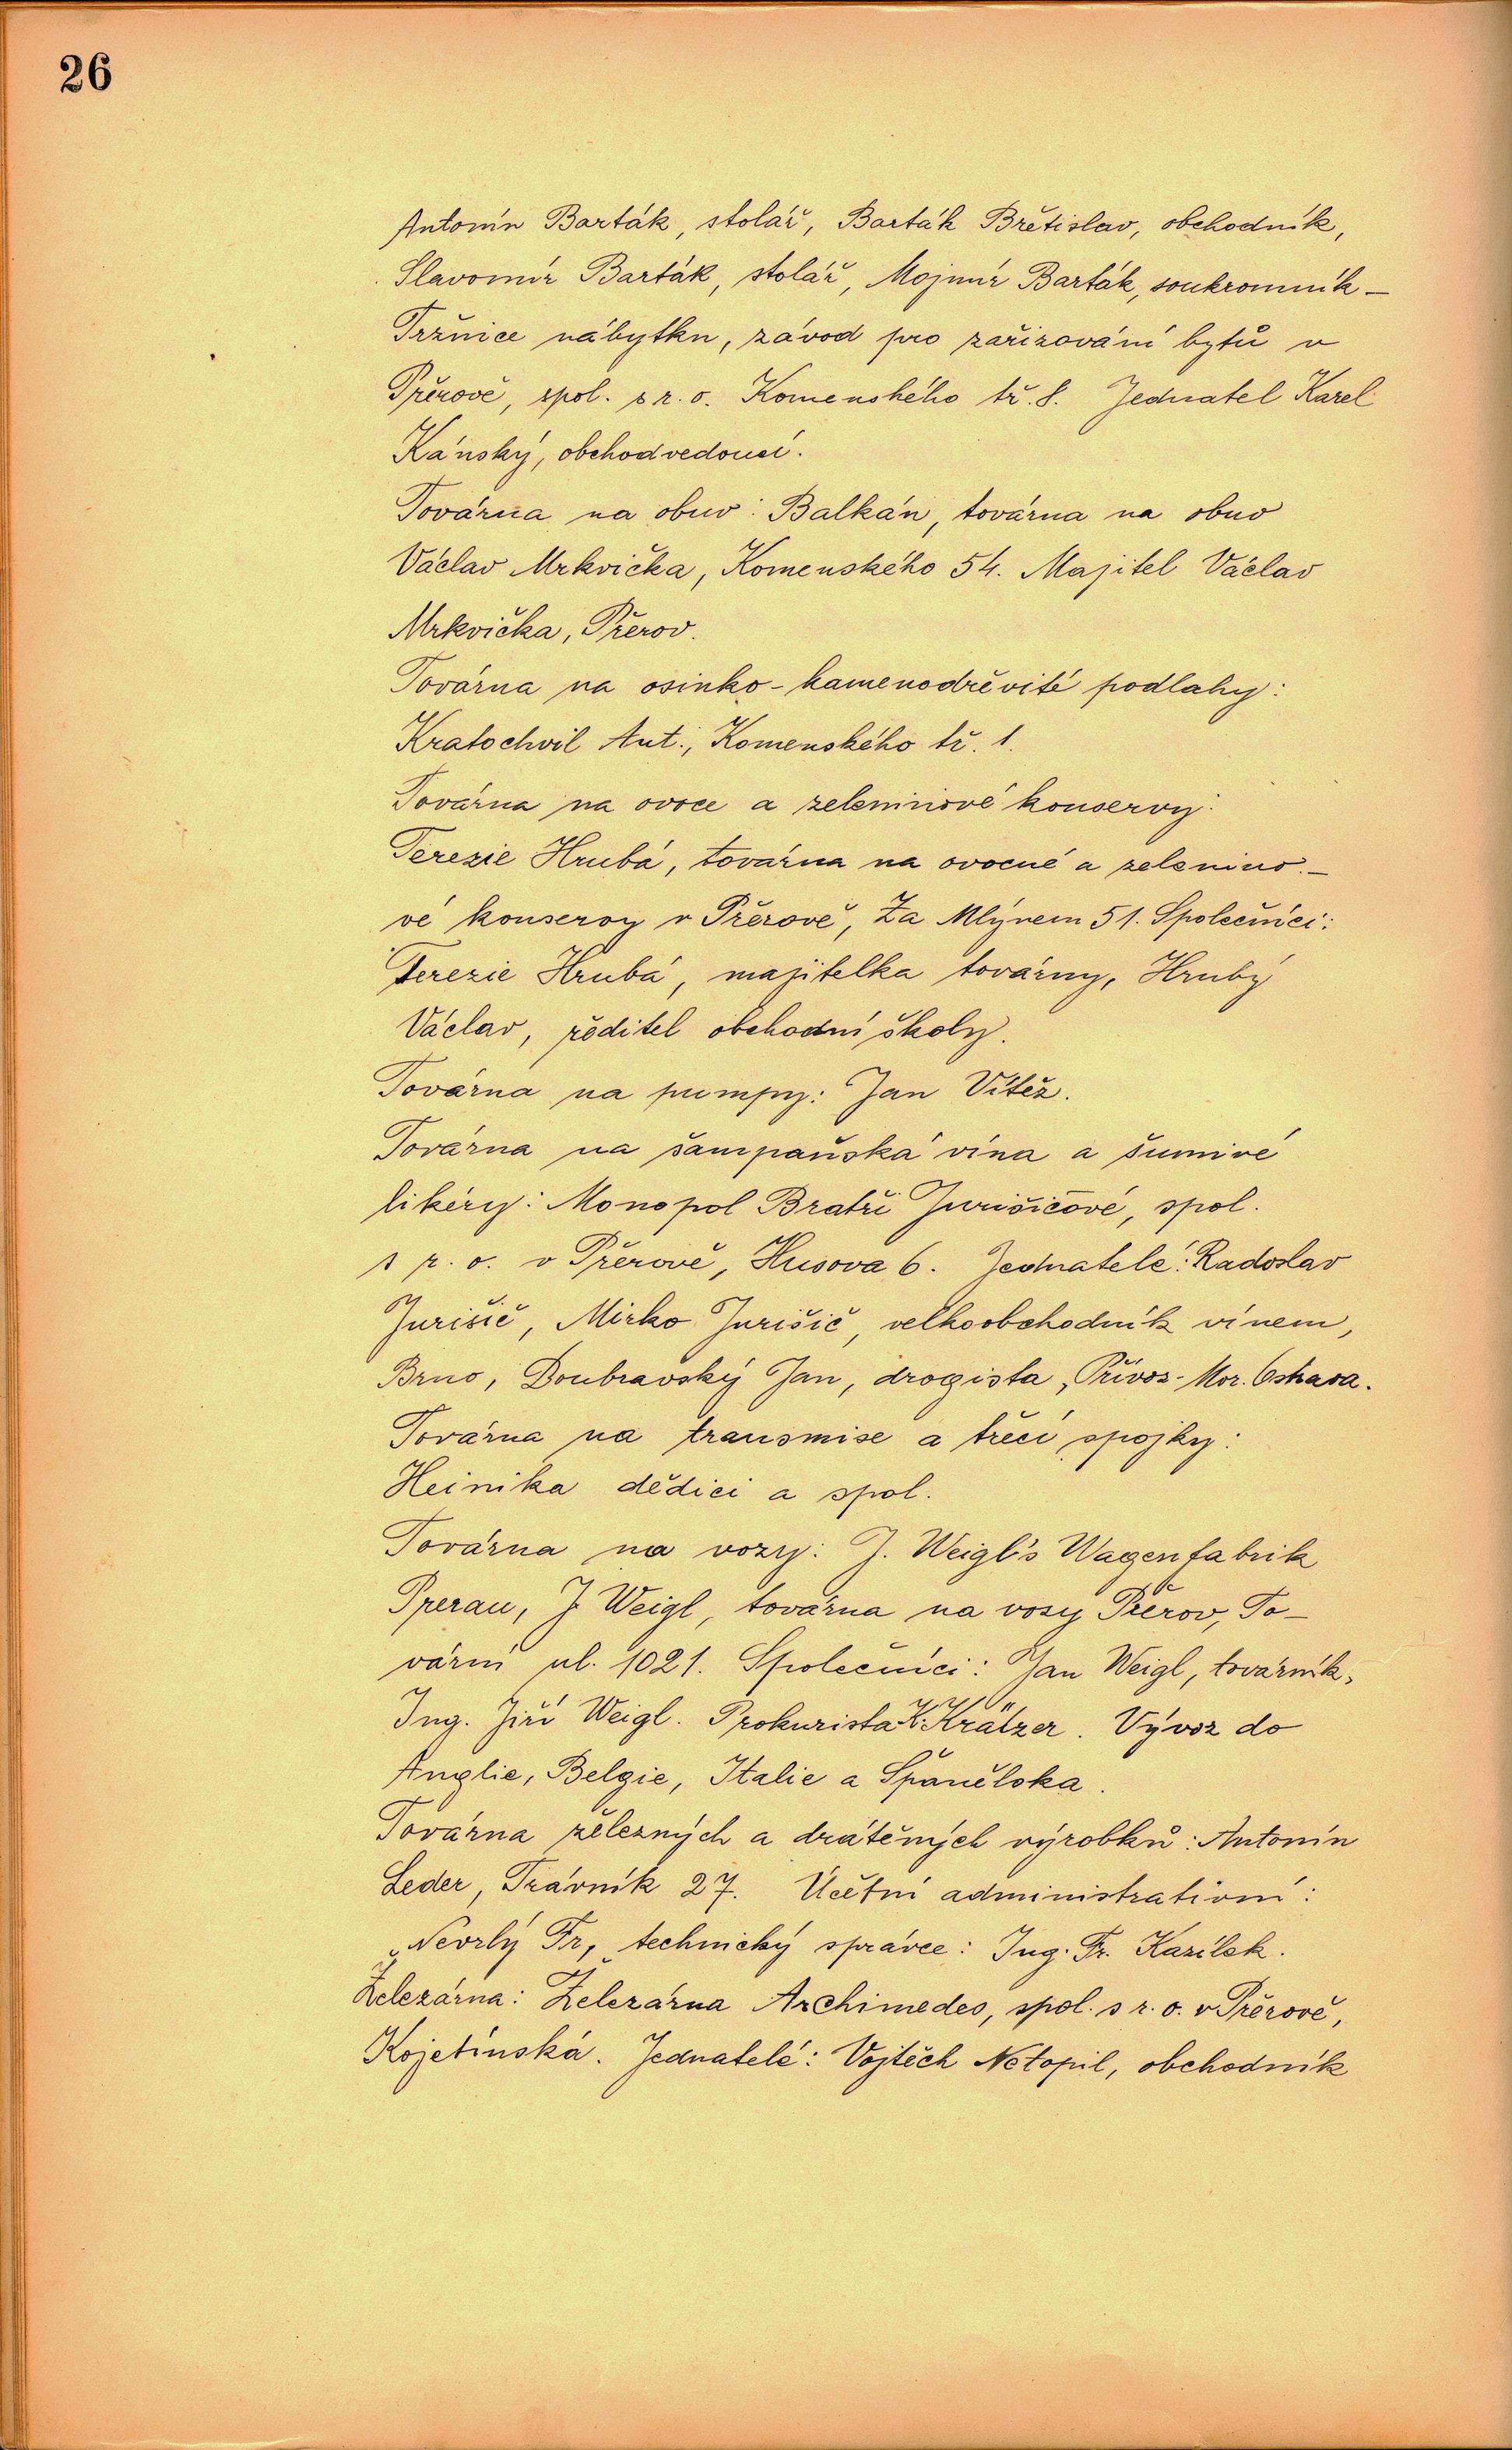 26
Antonín Barták, stolář, Barták Břetislav, obchodník,
Slavomír Barták, stolář, Mojmír Barták, soukromník –
Tržnice nábytku, závod pro zařizování bytů v
Přerově, spol. s r. o. Komenského tř. 8. Jednatel Karel
Kánský, obchodvedoucí.
Továrna na obuv: Balkán, továrna na obuv
Václav Mrkvička, Komenského 54. Majitel Václav
Mrkvička, Přerov.
Továrna na osinko-kamenodřevité podlahy:
Kratochvil Ant., Komenského tř. 1.
Továrna na ovoce a zeleninové konservy:
Terezie Hrubá, továrna na ovocné a zelenino-
vé konservy v Přerově, Za Mlýnem 51. Společníci:
Terezie Hrubá, majitelka továrny, Hrubý
Václav, ředitel obchodní školy.
Továrna na pumpy: Jan Vítěz.
Továrna na šampaňská vína a šumivé
likéry: Monopol Bratří Jurišičové, spol.
s r. o. v Přerově, Husova 6. Jednatelé: Radoslav
Jurišič, Mirko Jurišič, velkoobchodník vínem,
Brno, Doubravský Jan, drogista, Přívoz-Mor. Ostrava.
Továrna na transmise a třecí spojky:
Heinika dědici a spol.
Továrna na vozy: J. Weigl's Wagenfabrik
Prerau, J. Weigl, továrna na vozy Přerov, To-
vární ul. 1021. Společníci: Jan Weigl, továrník,
Ing. Jiří Weigl. Prokurista K. Krätzer. Vývoz do
Anglie, Belgie, Italie a Španělska.
Továrna železných a drátěných výrobků: Antonín
Leder, Trávník 27. Účetní administrativní:
Nevrlý Fr, technický správce: Ing. Fr. Kazílek.
Železárna: Železárna Archimedes, spol. s r. o. v Přerově,
Kojetínská. Jednatelé: Vojtěch Netopil, obchodník